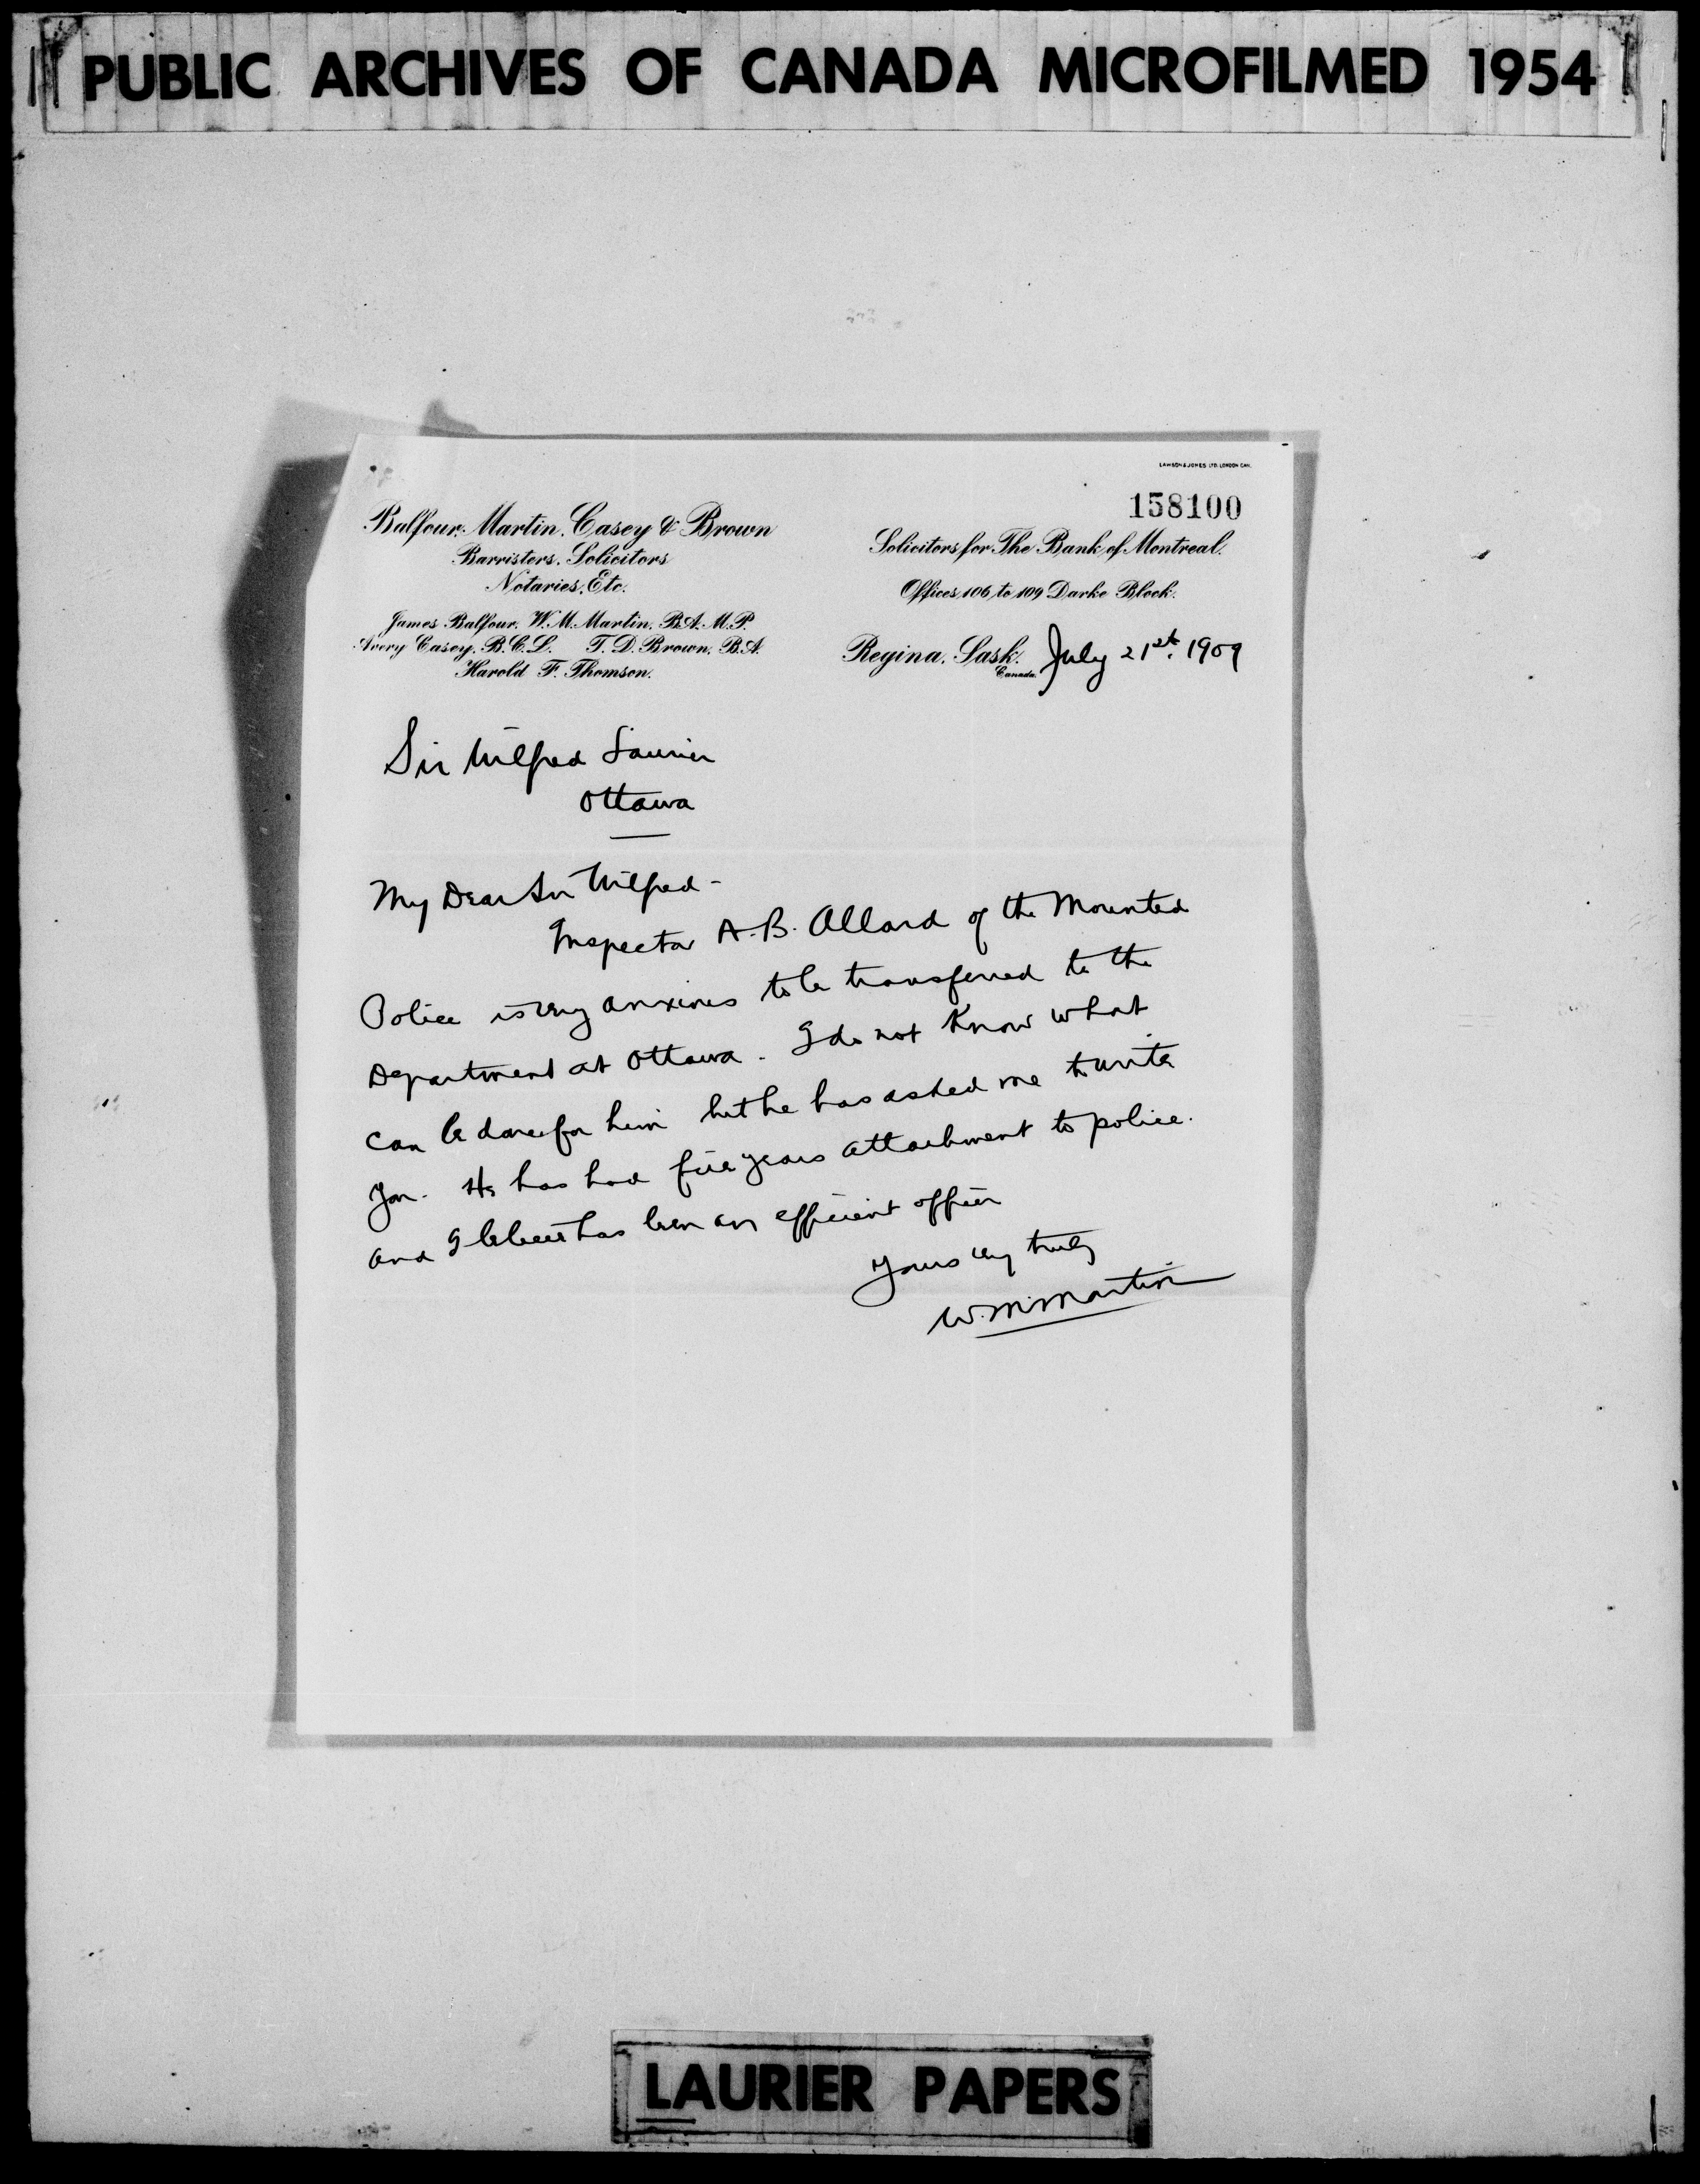 PUBLIC ARCHIVES OF CANADA MICROFILMED 1954
LAWSON & JONES LTD. LONDON CAN.
158100
Balfour, Martin, Casey & Brown
Barristers, Solicitors
Notaries, Etc.
James Balfour, W. M. Martin, B.A. M.P.
Avery Casey, B.C.L. T. D. Brown, B.A.
Harold F. Thomson.
Solicitors for The Bank of Montreal.
Offices 106 to 109 Darke Block.
Regina, Sask. July 21st. 1909
Canada.
Sir Wilfred Laurier
Ottawa
My Dear Sir Wilfred -
Inspector A. B. Allard of the Mounted
Police is very anxious to be transferred to the
Department at Ottawa. I do not know what
can be done for him but he has asked me to write
you. He has had five years attachment to police.
and I believe has been an efficient officer
Yours very truly
W. M. Martin
LAURIER PAPERS